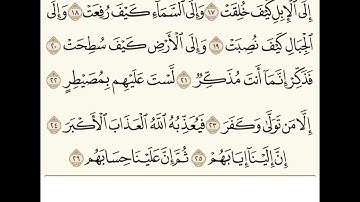 إِلَى ٱلۡإِبِلِ كَيۡفَ خُلِقَتۡ ١٧ وَإِلَى ٱلسَّمَآءِ كَيۡفَ رُفِعَتۡ ١٨ وَإِلَى
ٱلۡجِبَالِ كَيۡفَ نُصِبَتۡ ١٩ وَإِلَى ٱلۡأَرۡضِ كَيۡفَ سُطِحَتۡ ٢٠
فَذَكِّرۡ إِنَّمَآ أَنتَ مُذَكِّرٞ ٢١ لَّسۡتَ عَلَيۡهِم بِمُصَيۡطِرٍ ٢٢
إِلَّا مَن تَوَلَّىٰ وَكَفَرَ ٢٣ فَيُعَذِّبُهُ ٱللَّهُ ٱلۡعَذَابَ ٱلۡأَكۡبَرَ ٢٤
إِنَّ إِلَيۡنَآ إِيَابَهُمۡ ٢٥ ثُمَّ إِنَّ عَلَيۡنَا حِسَابَهُم ٢٦